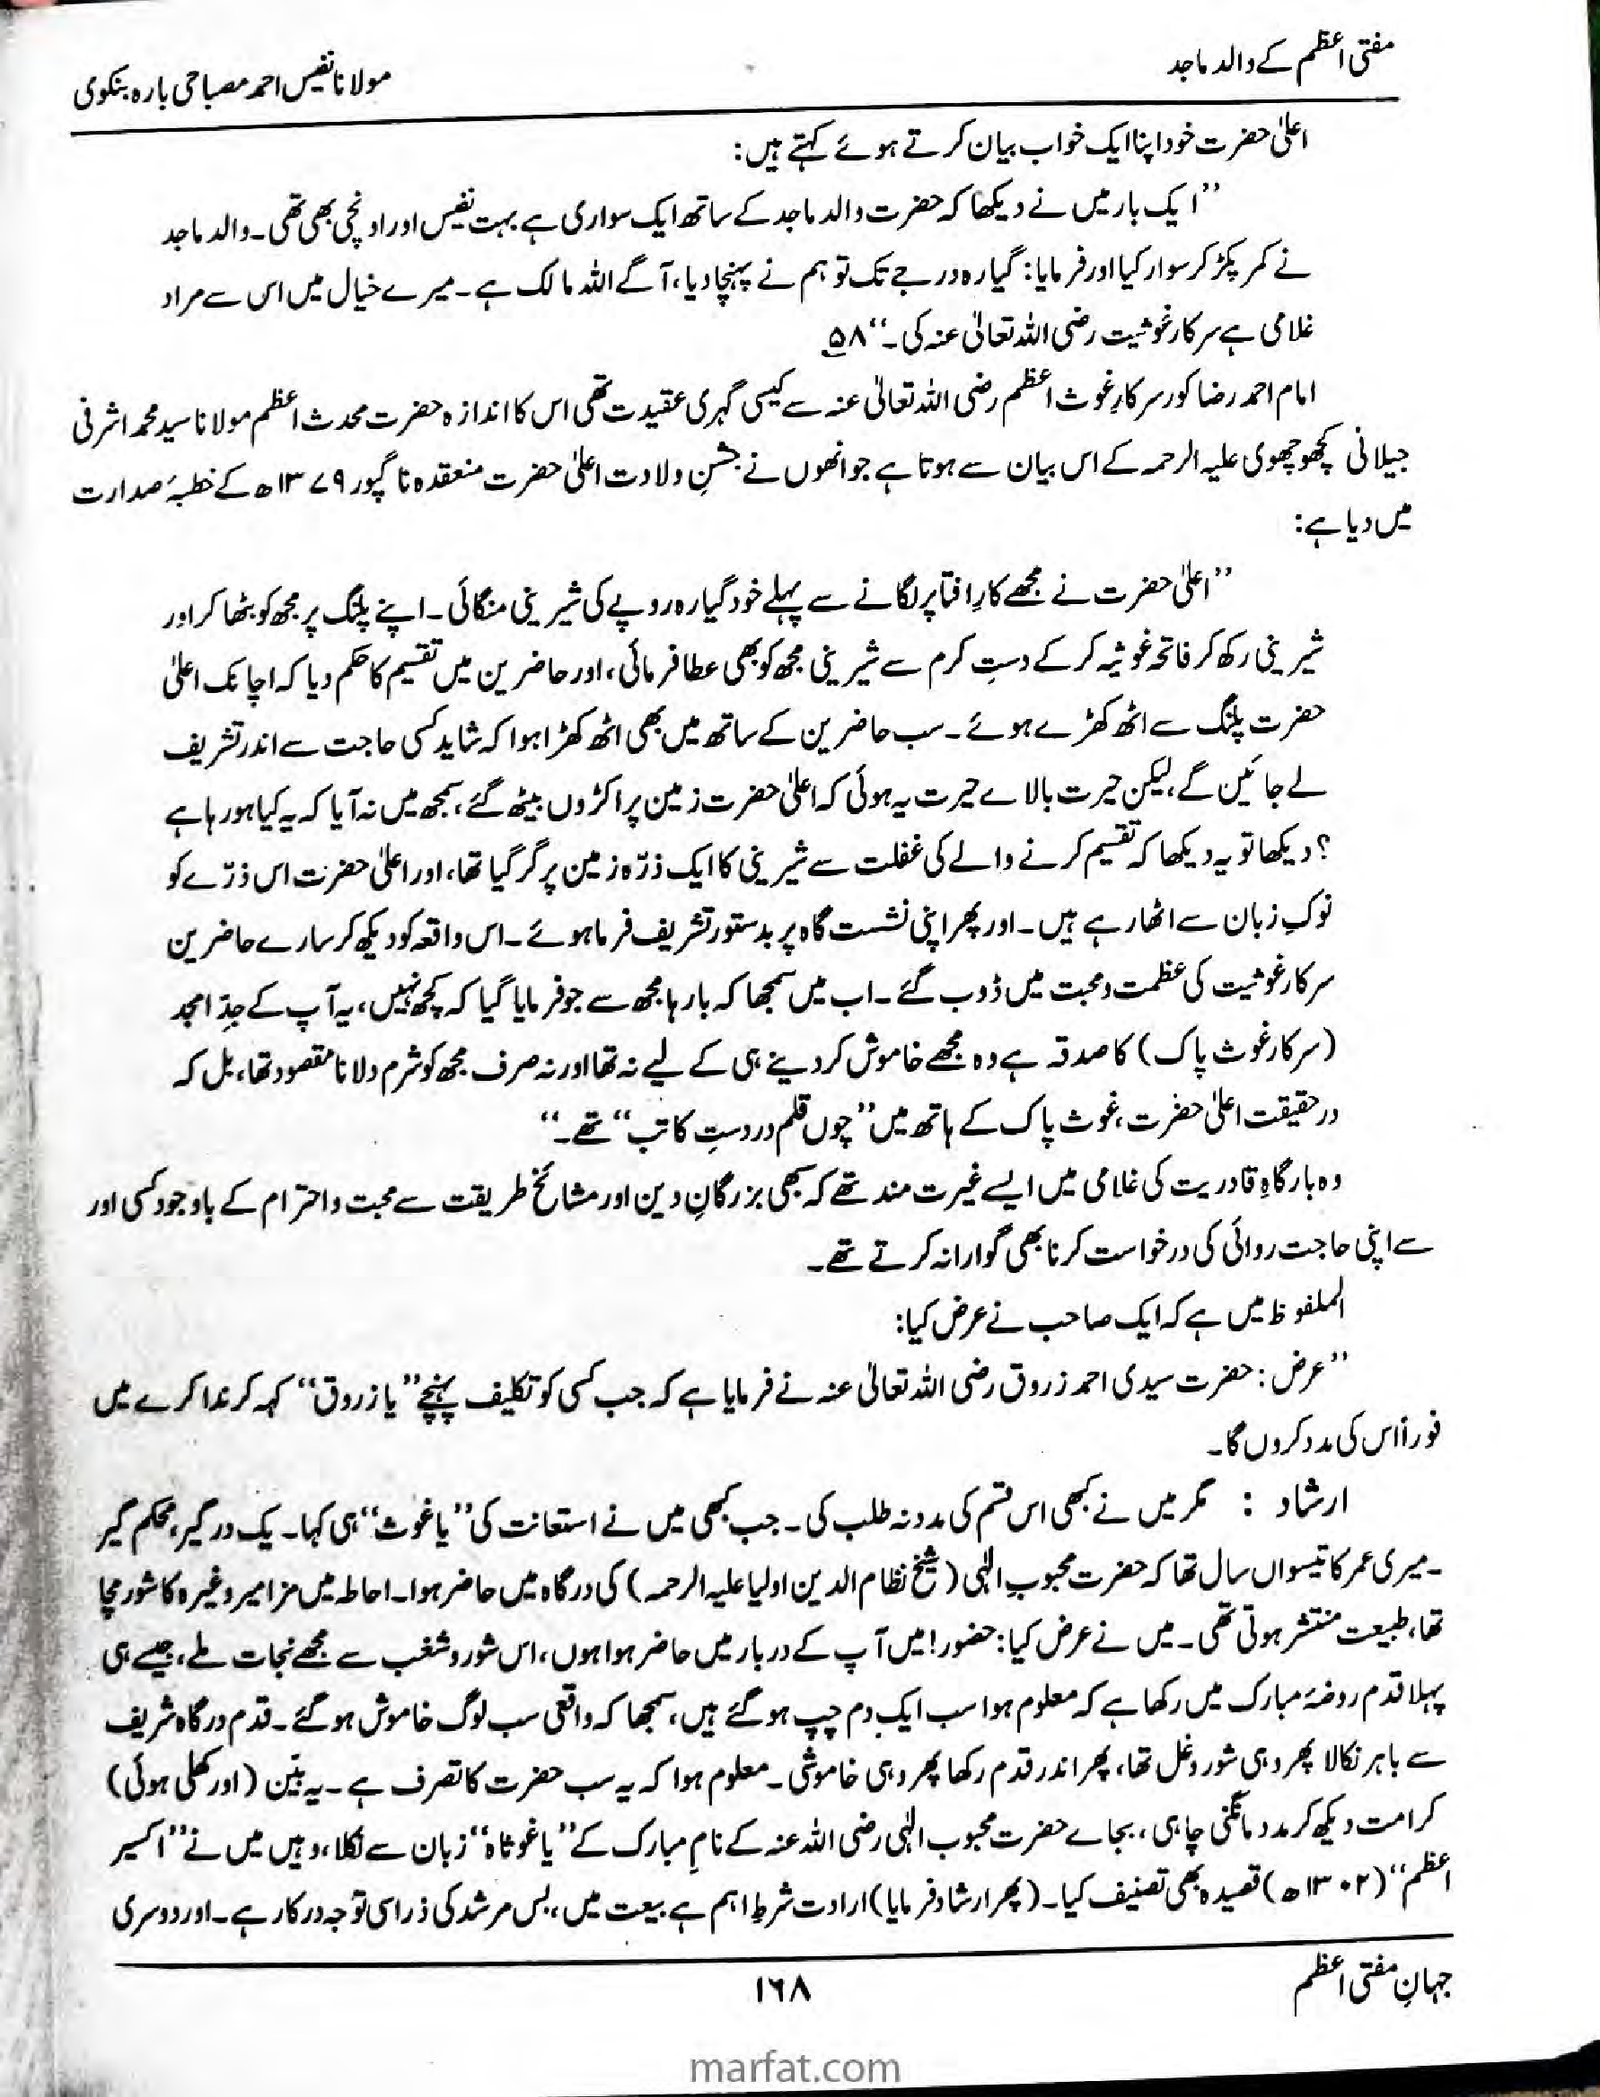 مفتی اعظم کے والد ماجد
مولانا نفیس احمد مصباحی بارہ بنکوی
اعلیٰ حضرت خود اپنا ایک خواب بیان کرتے ہوئے کہتے ہیں:
’’ایک بار میں نے دیکھا کہ حضرت والد ماجد کے ساتھ ایک سواری ہے بہت نفیس اور اونچی بھی تھی۔ والد ماجد
نے کمر پکڑ کر سوار کیا اور فرمایا: گیارہ درجے تک تو ہم نے پہنچا دیا، آگے اللہ مالک ہے۔ میرے خیال میں اس سے مراد
غلامی ہے سرکار غوثیت رضی اللہ تعالیٰ عنہ کی۔‘‘ ۵۸
امام احمد رضا کو سرکارِ غوث اعظم رضی اللہ تعالیٰ عنہ سے کیسی گہری عقیدت تھی اس کا اندازہ حضرت محدث اعظم مولانا سید محمد اشرفی
جیلانی کچھوچھوی علیہ الرحمہ کے اس بیان سے ہوتا ہے جو انھوں نے جشنِ ولادت اعلیٰ حضرت منعقدہ ناگپور ۱۳۷۹ھ کے خطبۂ صدارت
میں دیا ہے:
’’اعلیٰ حضرت نے مجھے کارِ افتا پر لگانے سے پہلے خود گیارہ روپے کی شیرینی منگائی۔ اپنے پلنگ پر مجھ کو بٹھا کر اور
شیرینی رکھ کر فاتحہ غوثیہ کر کے دستِ کرم سے شیرینی مجھ کو بھی عطا فرمائی، اور حاضرین میں تقسیم کا حکم دیا کہ اچانک اعلیٰ
حضرت پلنگ سے اٹھ کھڑے ہوئے۔ سب حاضرین کے ساتھ میں بھی اٹھ کھڑا ہوا کہ شاید کسی حاجت سے اندر تشریف
لے جائیں گے، لیکن حیرت بالاے حیرت یہ ہوئی کہ اعلیٰ حضرت زمین پر اکڑوں بیٹھ گئے، سمجھ میں نہ آیا کہ یہ کیا ہو رہا ہے
؟ دیکھا تو یہ دیکھا کہ تقسیم کرنے والے کی غفلت سے شیرینی کا ایک ذرّہ زمین پر گر گیا تھا، اور اعلیٰ حضرت اس ذرّے کو
نوکِ زبان سے اٹھا رہے ہیں۔ اور پھر اپنی نشست گاہ پر بدستور تشریف فرما ہوئے۔ اس واقعہ کو دیکھ کر سارے حاضرین
سرکار غوثیت کی عظمت و محبت میں ڈوب گئے۔ اب میں سمجھا کہ بارہا مجھ سے جو فرمایا گیا کہ کچھ نہیں، یہ آپ کے جدِّ امجد
(سرکار غوث پاک) کا صدقہ ہے وہ مجھے خاموش کر دینے ہی کے لیے نہ تھا اور نہ صرف مجھ کو شرم دلانا مقصود تھا، بل کہ
در حقیقت اعلیٰ حضرت، غوث پاک کے ہاتھ میں ’’چوں قلم در دستِ کاتب‘‘ تھے۔‘‘
وہ بارگاہِ قادریت کی غلامی میں ایسے غیرت مند تھے کہ سبھی بزرگانِ دین اور مشائخ طریقت سے محبت و احترام کے باوجود کسی اور
سے اپنی حاجت روائی کی درخواست کرنا بھی گوارا نہ کرتے تھے۔
الملفوظ میں ہے کہ ایک صاحب نے عرض کیا:
’’عرض: حضرت سیدی احمد زروق رضی اللہ تعالیٰ عنہ نے فرمایا ہے کہ جب کسی کو تکلیف پہنچے ’’یا زروق‘‘ کہہ کر ندا کرے میں
فوراً اس کی مدد کروں گا۔
ارشاد : مگر میں نے کبھی اس قسم کی مدد نہ طلب کی۔ جب کبھی میں نے استعانت کی ’’یا غوث‘‘ ہی کہا۔ یک در گیر، محکم گیر
۔ میری عمر کا تیسواں سال تھا کہ حضرت محبوب الٰہی (شیخ نظام الدین اولیا علیہ الرحمہ) کی درگاہ میں حاضر ہوا۔ احاطہ میں مزامیر وغیرہ کا شور مچا
تھا، طبیعت منتشر ہوتی تھی۔ میں نے عرض کیا: حضور! میں آپ کے دربار میں حاضر ہوا ہوں، اس شور و شغب سے مجھے نجات ملے، جیسے ہی
پہلا قدم روضۂ مبارک میں رکھا ہے کہ معلوم ہوا سب ایک دم چپ ہو گئے ہیں، سمجھا کہ واقعی سب لوگ خاموش ہو گئے۔ قدم درگاہ شریف
سے باہر نکالا پھر وہی شور و غل تھا، پھر اندر قدم رکھا پھر وہی خاموشی۔ معلوم ہوا کہ یہ سب حضرت کا تصرف ہے۔ یہ بیّن (اور کھلی ہوئی)
کرامت دیکھ کر مدد مانگنی چاہی، بجاے حضرت محبوب الٰہی رضی اللہ عنہ کے نامِ مبارک کے ’’یا غوثاہ‘‘ زبان سے نکلا، وہیں میں نے ’’اکسیر
اعظم‘‘ (۱۳۰۲ھ) قصیدہ بھی تصنیف کیا۔ (پھر ارشاد فرمایا) ارادت شرطِ اہم ہے بیعت میں، بس مرشد کی ذرا سی توجہ درکار ہے۔ اور دوسری
جہانِ مفتی اعظم
۱۶۸
marfat.com